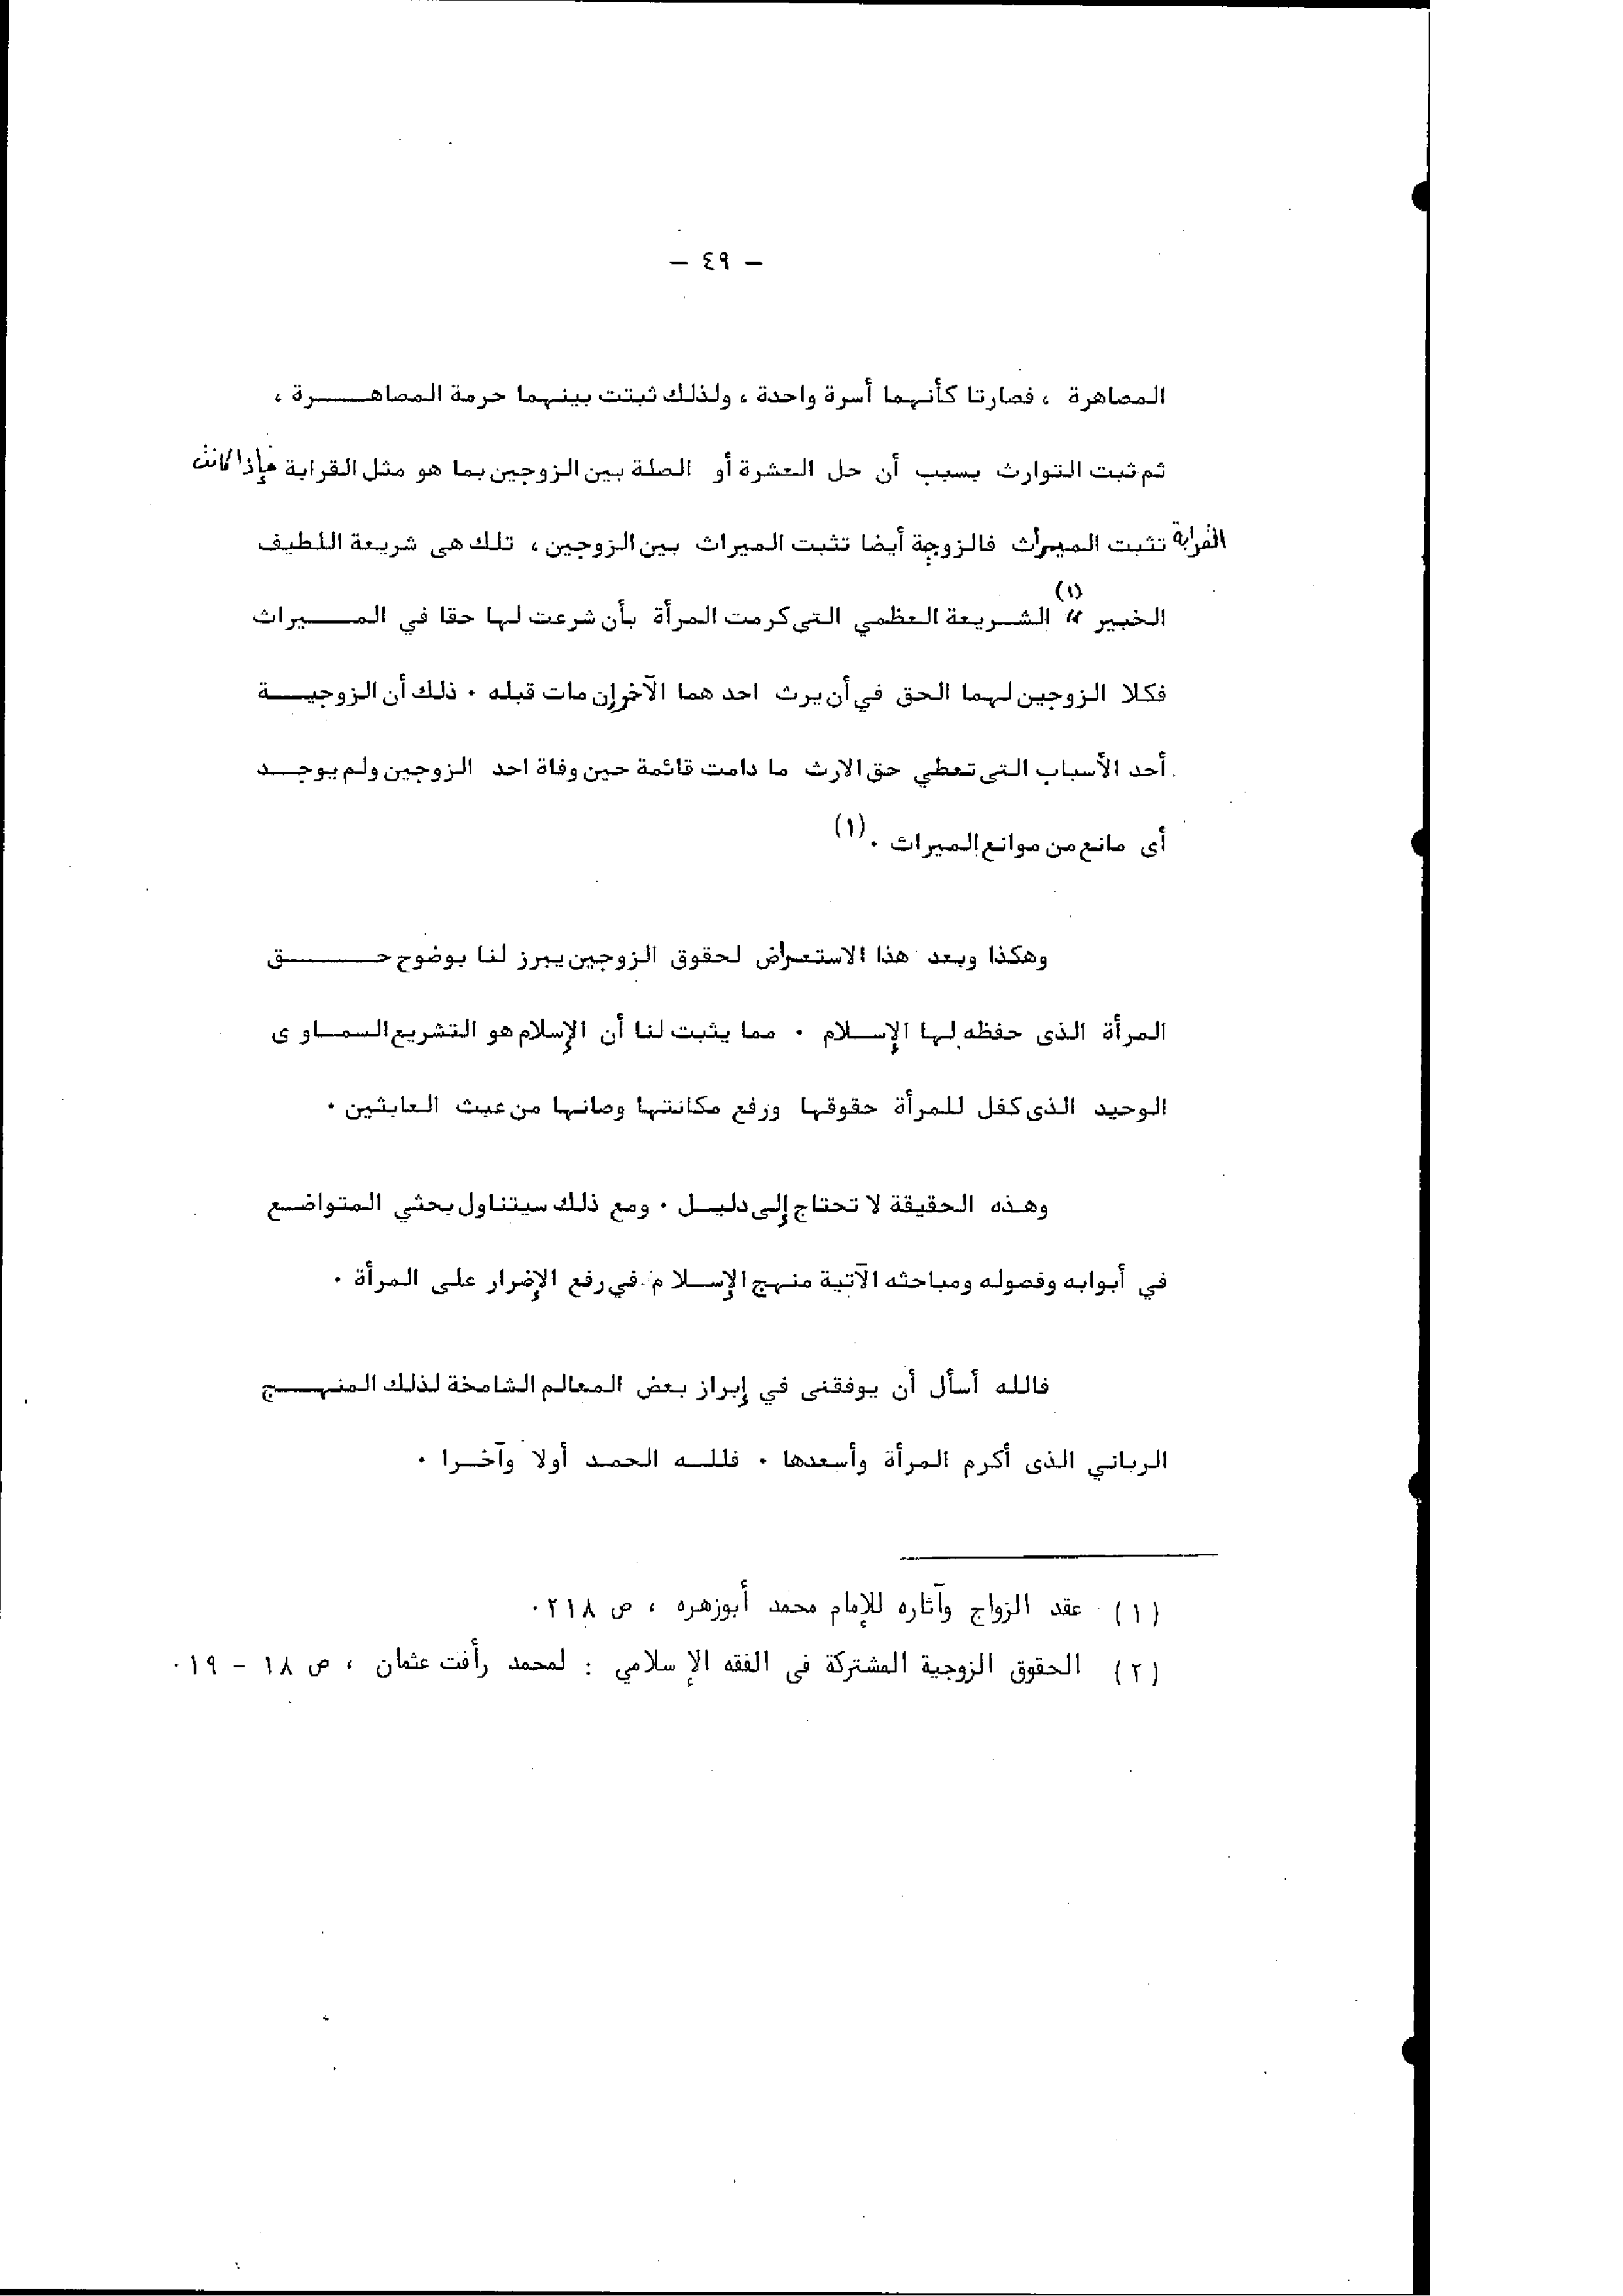 - ٤٩ -
المصاهرة ، فصارتا كأنهما أسرة واحدة ، ولذلك ثبتت بينهما حرمة المصاهرة ،
ثم ثبت التوارث بسبب أن حل العشرة أو الصلة بين الزوجين بما هو مثل القرابة فإذا كانت
القرابة تثبت الميراث فالزوجة أيضا تثبت الميراث بين الزوجين ، تلك هى شريعة اللطيف
الخبير " (١) الشريعة العظمي التى كرمت المرأة بأن شرعت لها حقا في الميراث
فكلا الزوجين لهما الحق في أن يرث احد هما الآخر إن مات قبله . ذلك أن الزوجية
أحد الأسباب التى تعطي حق الارث ما دامت قائمة حين وفاة احد الزوجين ولم يوجد
أى مانع من موانع الميراث . (١)
وهكذا وبعد هذا الاستعراض لحقوق الزوجين يبرز لنا بوضوح حق
المرأة الذى حفظه لها الإسلام . مما يثبت لنا أن الإسلام هو التشريع السماوى
الوحيد الذى كفل للمرأة حقوقها ورفع مكانتها وصانها من عبث العابثين .
وهذه الحقيقة لا تحتاج إلى دليل . ومع ذلك سيتناول بحثي المتواضع
في أبوابه وفصوله ومباحثه الآتية منهج الإسلام في رفع الإضرار على المرأة .
فالله أسأل أن يوفقنى في إبراز بعض المعالم الشامخة لذلك المنهج
الرباني الذى أكرم المرأة وأسعدها . فلله الحمد أولا وآخرا .
(١) عقد الزواج وآثاره للإمام محمد أبوزهره ، ص ٢١٨.
(٢) الحقوق الزوجية المشتركة فى الفقه الإسلامي : لمحمد رأفت عثمان ، ص ١٨ - ١٩.